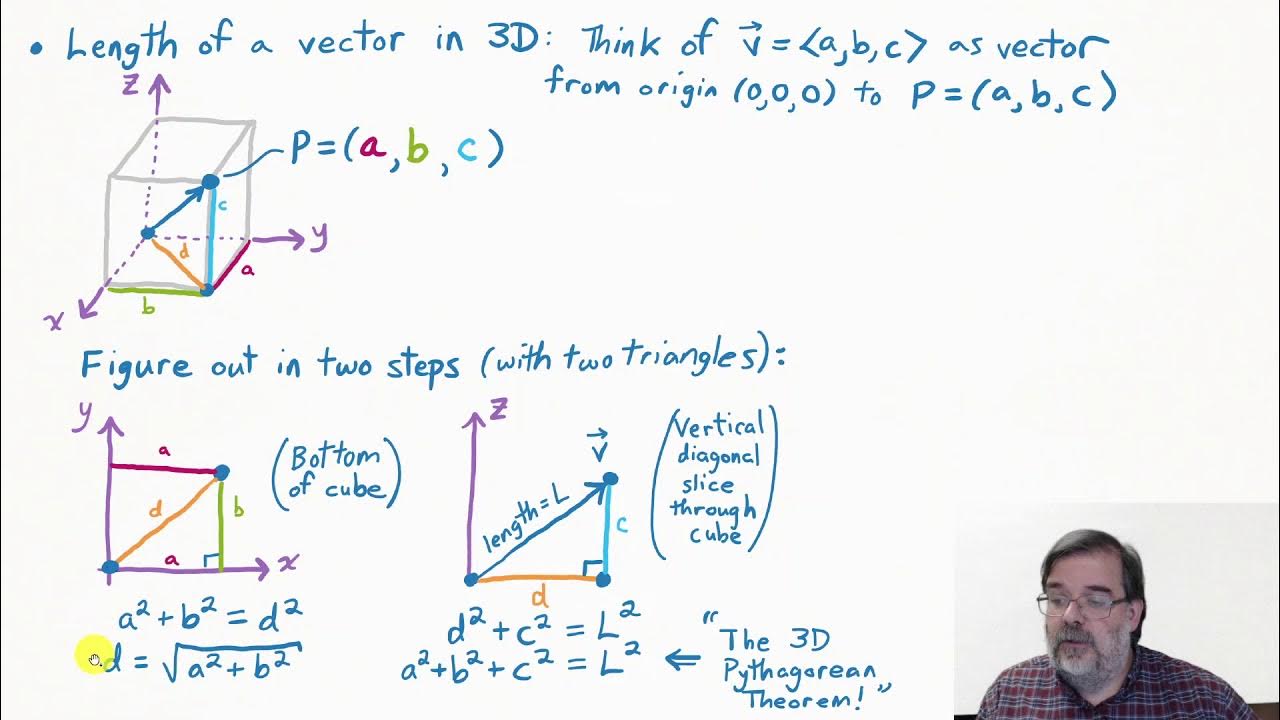 • Length of a vector in 3D: Think of v⃗ = <a,b,c> as vector
from origin (0,0,0) to P = (a,b,c)
z
P=(a,b,c)
c
y
d
a
b
x
Figure out in two steps (with two triangles):
y
a
d
b
a
x
(Bottom
of cube)
z
v⃗
length = L
c
d
(Vertical
diagonal
slice
through
cube)
a² + b² = d²
d = √(a² + b²)
d² + c² = L²
a² + b² + c² = L² ⇐
"The 3D
Pythagorean
Theorem!"